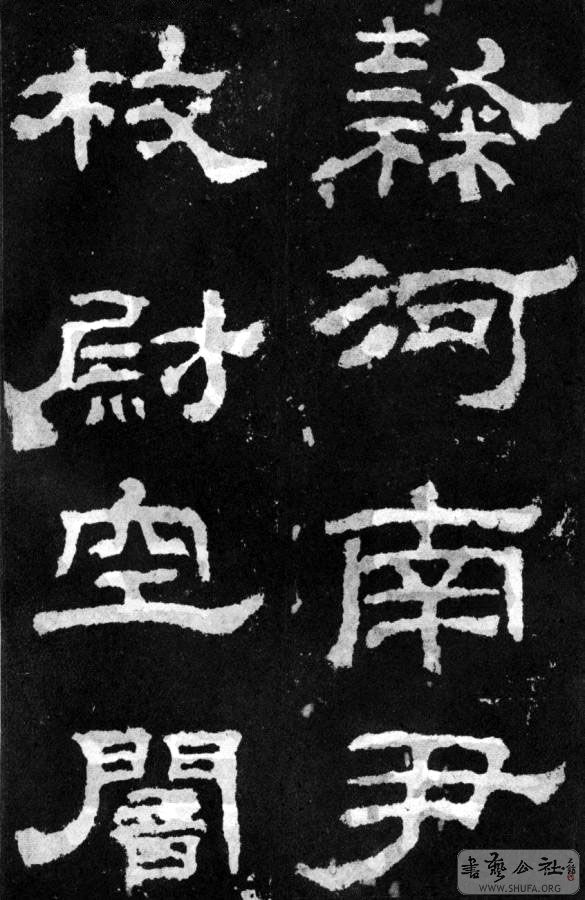 隸河南尹
校尉空闇
書藝公社
WWW.SHUFA.ORG